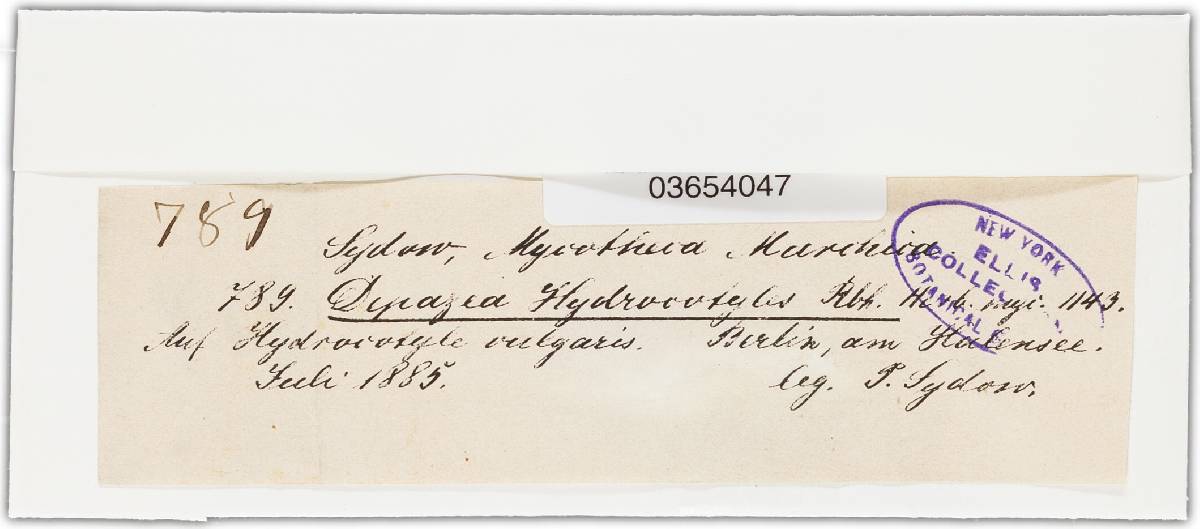 03654047
789
Sydow, Mycotheca Marchica
789. Depazea Hydrocotyles Rbh. Hb. myc. 1143.
Auf Hydrocotyle vulgaris. Berlin, am Halensee.
Juli 1885. leg. P. Sydow.
NEW YORK
ELLIS
COLLEC
BOTANICAL